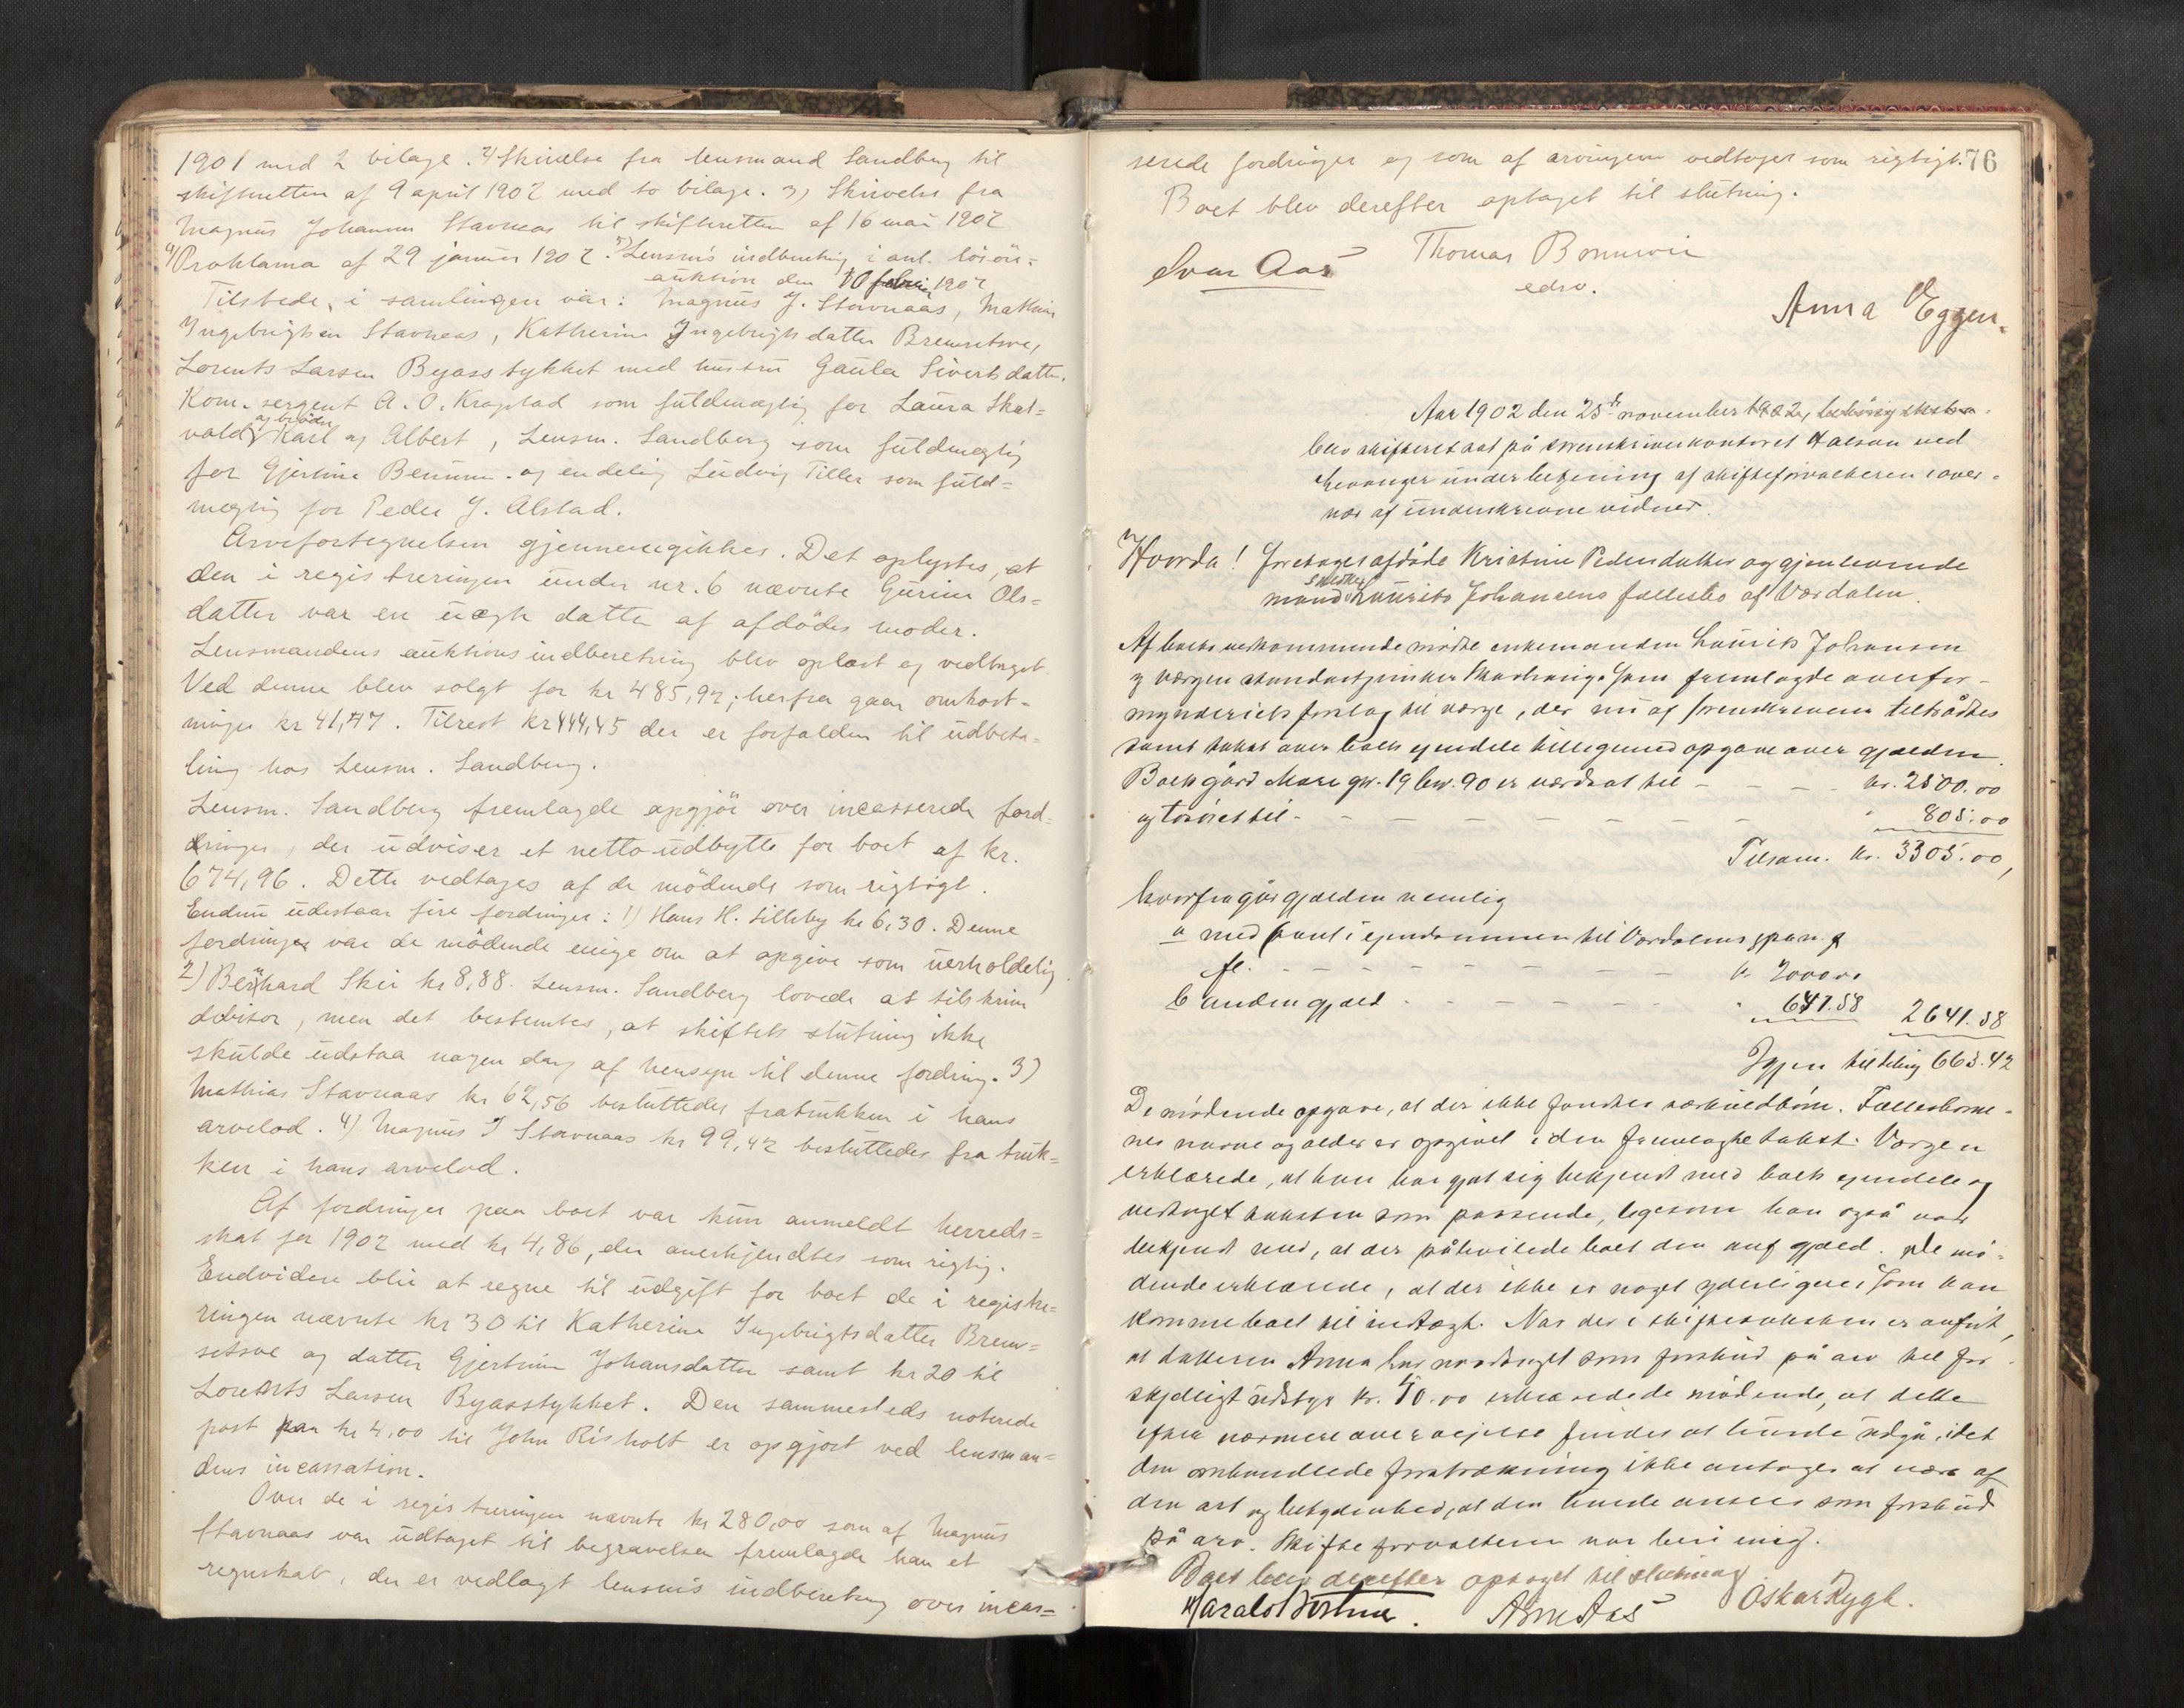 1901 med 2 bilage. 2) Skrivelse fra lensmand Sandberg til
skifteretten af 9 april 1902 med to bilage. 3) Skrivelse fra
Magnus Johansen Stavnaas til skifteretten af 16 mai 1902
4) Proklama af 29 januar 1902. 5) Lensm's indberetning i anl. lösöre-
auktion den 10 1902
Tilstede i samlingen var: Magnus J. Stavnaas, Mathias
Ingebrigtsen Stavnaas, Katherine Ingebrigtsdatter Bremsetsve,
Lorents Larsen Byasstykket med hustru Gaula Sivertsdatter.
Kom. sergent A. O. Kragstad som fuldmægtig for Laura Skal-
vold og brödre Karl og Albert, Lensm. Sandberg som fuldmegtig
for Gjertine Benum og endelig Ludvig Tiller som fuld-
megtig for Peder J. Alstad.
Arvefortegnelsen gjennemgikkes. Det oplystes, at
den i registreringen under nr. 6 nævnte Gurine Ols-
datter var en uægte datter af afdödes moder.
Lensmandens auktionsindberetning blev oplæst og vedtaget.
Ved denne blev solgt for kr 485,92; herfra gaar omkost-
ninger kr 41,47. Tilrest kr 444,45 der er forfalden til udbeta-
ling hos Lensm. Sandberg.
Lensm. Sandberg fremlagde opgjör over incasserede ford-
ringer, der udviser et nettoudbytte for boet af kr.
674,96. Dette vedtages af de mödende som rigtigt.
Endnu udestaar fire fordringer: 1) Hans H. Lilleby kr 6,30. Denne
fordring var de mödende enige om at opgive som uerholdelig.
2) Bernhard Skei kr 8,88. Lensm. Sandberg lovede at tilskrive
debitor, men det bestemtes, at skiftets slutning ikke
skulde udstaa nogen dag af hensyn til denne fordring. 3)
Mathias Stavnaas kr 62,56 besluttedes fratrukken i hans
arvelod. 4) Magnus J Stavnaas kr 99,42 besluttedes fratruk-
ken i hans arvelod.
Af fordringer paa boet var kun anmeldt herreds-
skat for 1902 med kr 4,86, der anerkjendtes som rigtig.
Endvidere blir at regne til udgift for boet de i registre-
ringen nævnte kr 30 til Katherine Ingebrigtsdatter Brem-
setsve og datter Gjertine Johansdatter samt kr 20 til
Lorents Larsen Byasstykket. Den sammesteds noterede
post paa kr 4,00 til John Risholt er opgjort ved lensman-
dens incassation.
Over de i registreringen nævnte kr 280,00 som af Magnus
Stavnaas var udtaget til begravelsen fremlagde han et
regnskab, der er vedlagt lensm's indberetning over incas-
serede fordringer og som af arvingerne vedtoges som rigtigt.
76
Boet blev derefter optaget til slutning.
Ivar Aas
Thomas Bonnevie
edsv.
Anna Eggen.
Aar 1902 den 25de november
blev skifteret sat på sorenskriverkontoret Halsan ved
Levanger under betjening af skifteforvalteren i over-
vær af underskrevne vidner.
Hvorda! foretoges afdöde Kristine Pedersdatter og gjenlevende
mand snedker Laurits Johansens fællesbo af Værdalen.
Af boets vedkommende mödte enkemanden Laurits Johansen
og værgen standartjunker som fremlagde overfor-
mynderiets forslag til værge, der nu af sorenskriveren tiltrådtes
samt takst over boets eiendele tilligemed opgave over gjælden.
Boets gård Mare gnr. 19 bnr. 90 er værdsat til - - - - kr. 2500.00
og lösöret til - - - - - - - - " 805.00
Tilsam. kr. 3305.00,
hvorfra går gjælden nemlig
a med pant i eiendommen til Værdalens sparebk
fl. - - - - - - - - - kr. 2000.00
b anden gjæld - - - - - - " 641.58 2641.58
Igjen til deling 663.42
De mödende opgave, at der ikke fandtes særkuldbörn. Fællesbörne-
nes navne og alder er opgivet i den fremlagte takst. Værgen
erklærede, at han har gjort sig bekjendt med boets eiendele og
vedtaget taksten som passende, ligesom han også var
bekjendt med, at der påhvilede boet den anf. gjæld. De mö-
dende erklærede, at der ikke er noget yderligere, som kan
komme boet til indtægt. Når der i skiftetaksten er anfört,
at datteren Anna har modtaget som forskud på arv til for-
skjelligt udstyr kr. 40.00 erklærede de mödende, at dette
efter nærmere overveielse findes at burde udgå, idet
den omhandlede forstrækning ikke antages at være af
den art og betydenhed, at den burde ansees som forskud
på arv. Skifteforvalteren var heri enig.
Boet blev derefter optaget til slutning
Harald
Arne Aas
Oskar Rygh.